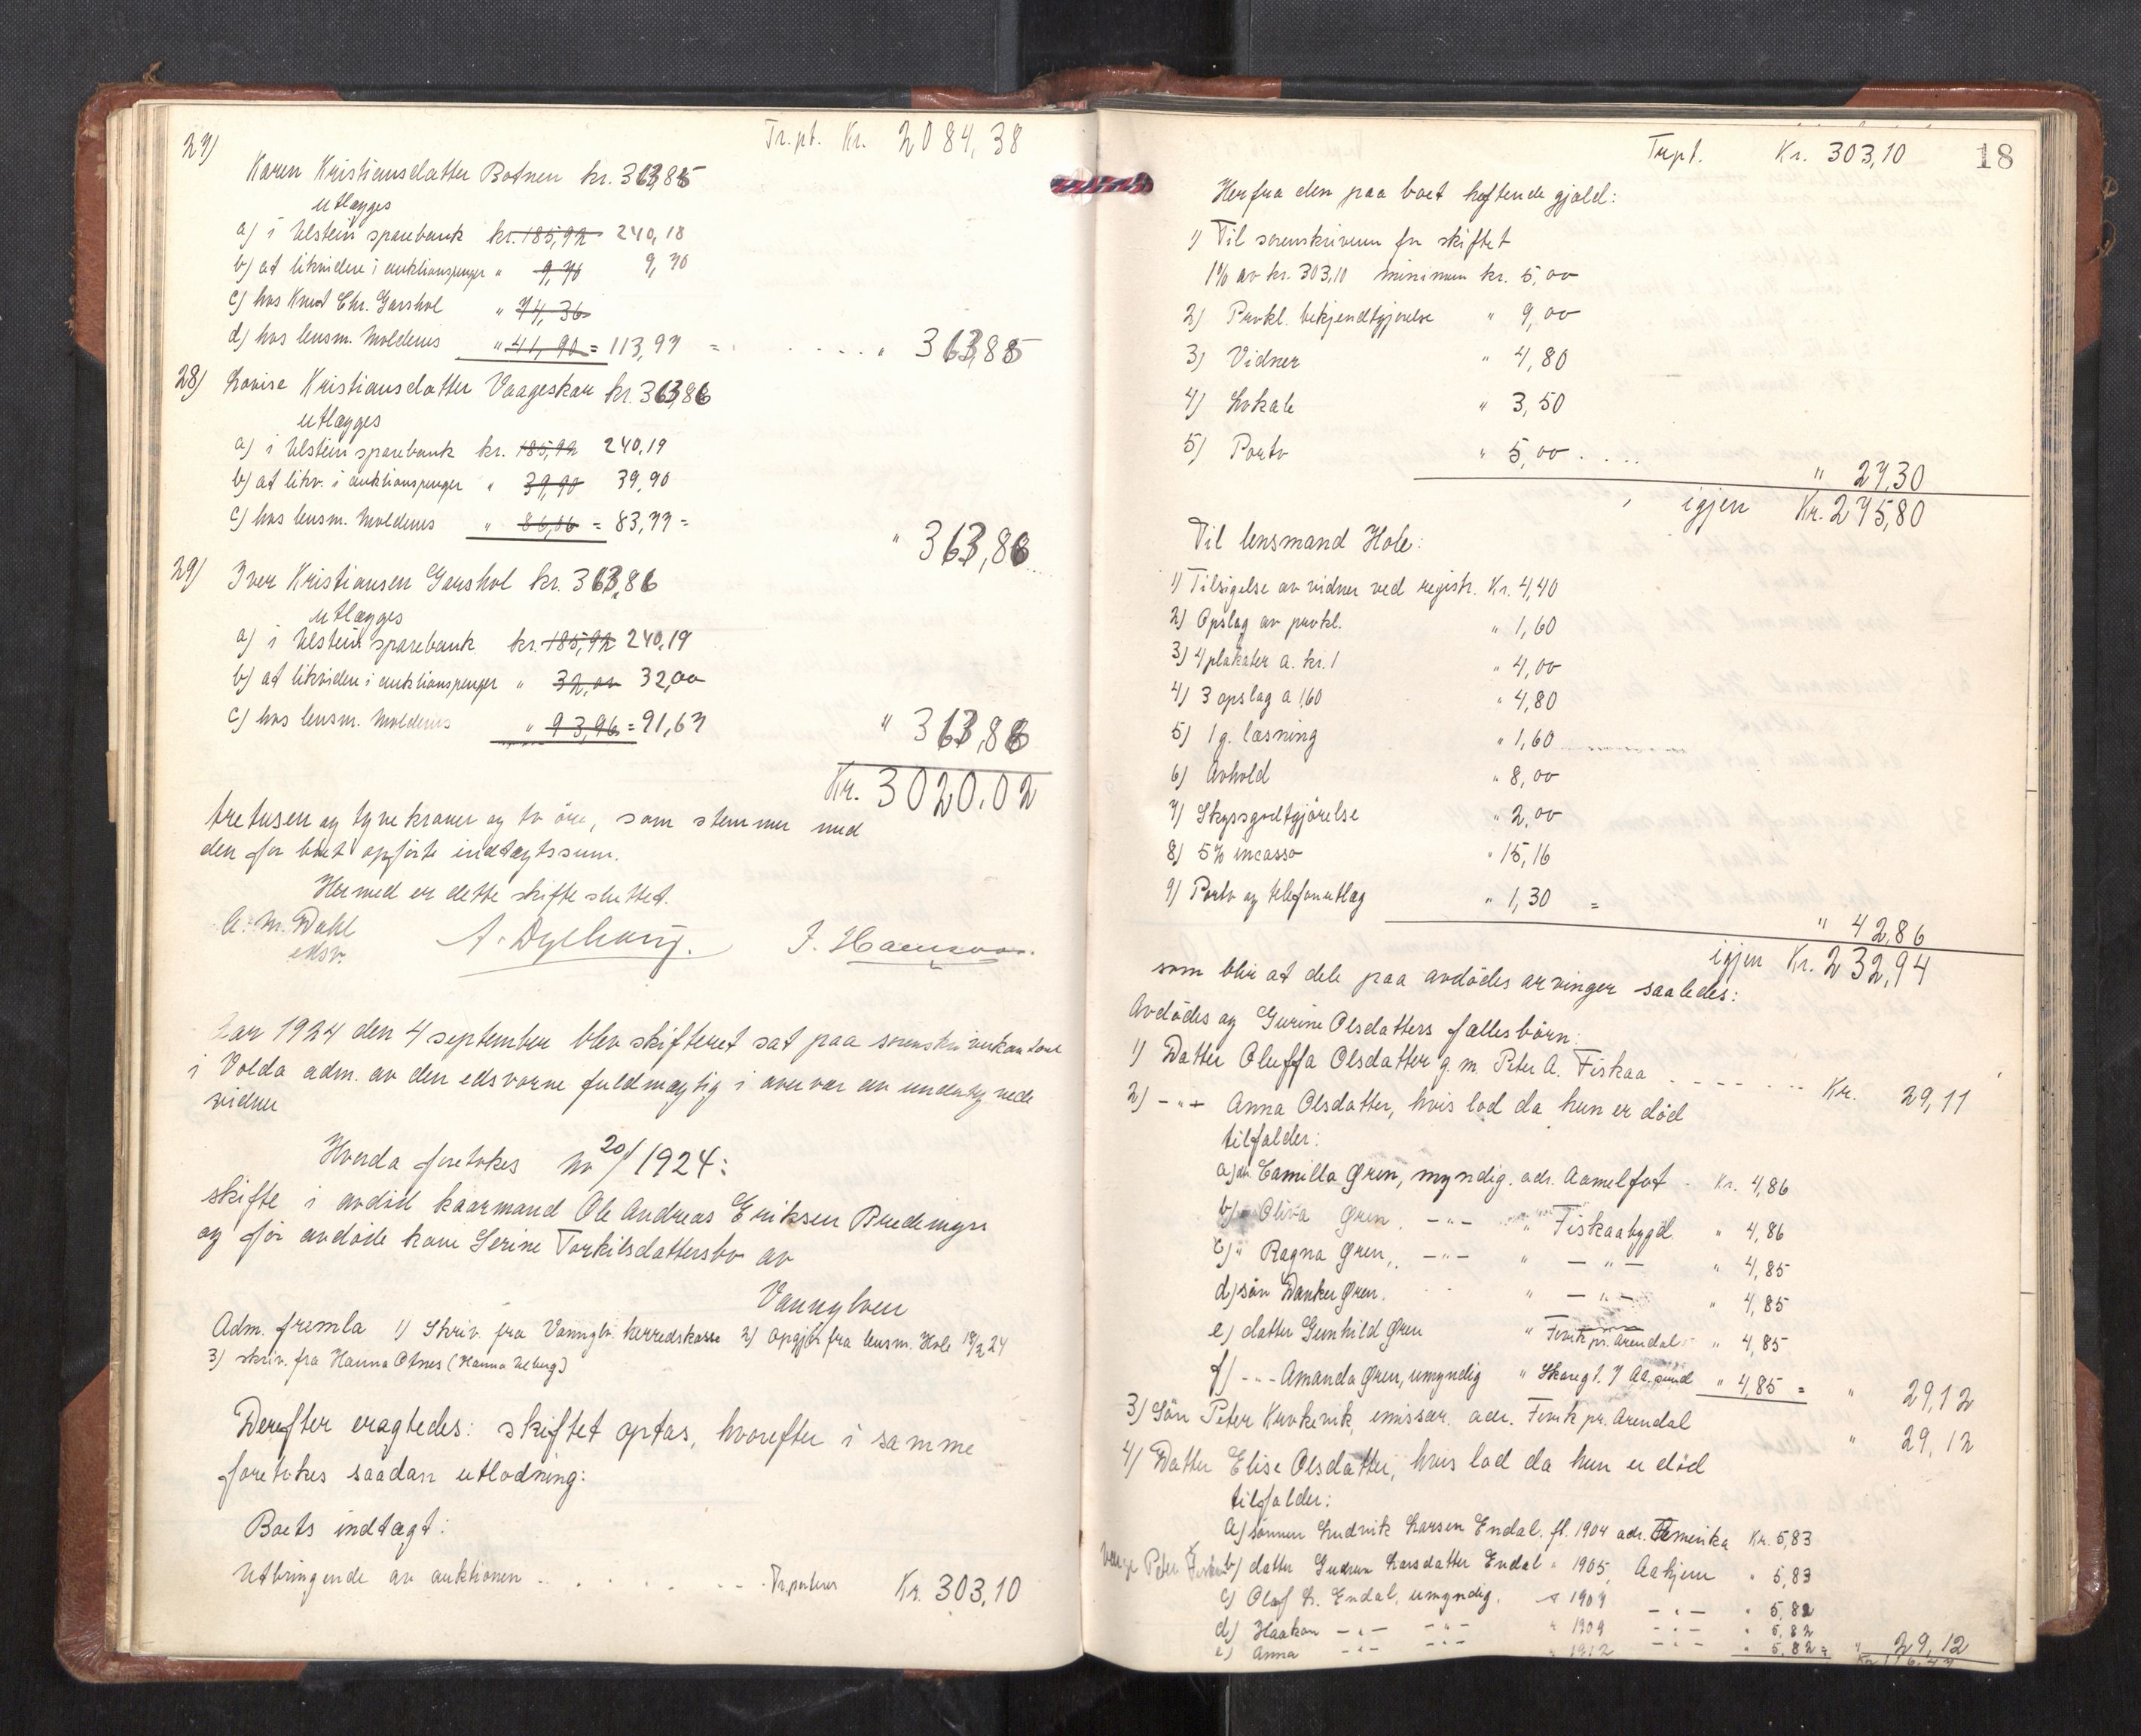 Tr.pt. Kr. 2084,38
27)
Karen Kristiansdatter Botnen kr. 363,85
utlægges
a) i Ulstein sparebank kr. 185,92 240,18
b) at likvidere i auktionspenger " 9,70 9,70
c) hos Knut Chr. Garshol " 74,36
d) hos lensm. Moldenes " 41,90 = 113,97 = " 363,85
28) Lovise Kristiansdatter Vaageskar kr. 363,86
utlægges
a) i Ulstein sparebank kr. 185,92 240,19
b) at likv. i auktionspenger " 39,90 39,90
c) hos lensm. Moldenes " = 83,77 = " 363,86
29) Iver Kristiansen Garshol kr. 363,86
utlægges
a) i Ulstein sparebank kr. 185,92 240,19
b) at likvidere i auktionspenger " 32,00 32,00
c) hos lensm. Moldenes " 93,96 = 91,67 " 363,86
Kr. 3020.02
tretusen og tyve kroner og to øre, som stemmer med
den for boet opførte indtægtssum.
Hermed er dette skifte sluttet.
A. M. Dahl
edsv.
Aar 1924 den 4 september blev skifteret sat paa sorenskriverkontoret
i Volda adm. av den edsvorne fuldmægtig i overvær av undertegnede
vidner
Hvorda foretokes No 20/1924:
skifte i avdød kaarmand Ole Andreas Eriksen Bredemyr
og før avdøde kone Serine Torkilsdattersbo av
Vannylven
Adm. fremla 1) Skriv. fra Vannylv. herredskasse 2) Opgjør fra lensm. Hole 18/2 24
3) skriv. fra Hanna Otnes (Hanna Ueberg)
Derefter eragtedes: skiftet optas, hvorefter i samme
foretokes saadan utlodning:
Boets indtægt:
Utbringende av auktionen . . . . . Tr.porteres Kr. 303,10
Trpt. Kr. 303,10 18
Herfra den paa boet heftende gjæld:
1) Til sorenskriveren for skiftet
1% av kr. 303,10 minimum kr. 5,00
2) Prokl. bekjendtgjørelse " 9,00
3) Vidner " 4,80
4) Lokale " 3,50
5) Porto " 5,00 . . . .
" 27,30
igjen Kr. 275,80
Til lensmand Hole:
1) Tilsigelse av vidner ved registr. Kr. 4,40
2) Opslag av prokl. " 1,60
3) 4 plakater a. kr. 1 " 4,00
4) 3 opslag a 1,60 " 4,80
5) 1 g. læsning " 1,60
6) Avhold " 8,00
7) Skyssgodtgjørelse " 2,00
8) 5% incasso " 15,16
9) Porto og telefonutlæg " 1,30 =
" 42,86
igjen Kr. 232,94
som blir at dele paa avdødes arvinger saaledes:
Avdødes og Gurine Olsdatters fællesbørn:
1) Datter Oluffa Olsdatter g. m. Peter A. Fiskaa . . . . . Kr. 29,11
2) - " - Anna Olsdatter, hvis lod da hun er død
tilfalder:
a) dr Camilla Øren, myndig. adr. Aamelfot Kr. 4,86
b) Oliva Øren. - " - " Fiskaabygd. " 4,86
c) " Ragna Øren, - " - " - " - " 4,85
d) søn Danker Øren. " - " - " 4,85
e) datter Gunhild Øren " Fevik pr. Arendal " 4,85
f) - - - Amanda Øren, umyndig " Skaregt. 7 Aa.sund " 4,85 = " 29,12
3) Søn Peter Krokevik, emissær. adr. Fevik pr. Arendal " 29,12
4) Datter Elise Olsdatter, hvis lod da hun er død
tilfalder:
a) sønnen Ludvik Larsen Endal. fl. 1904 adr. Amerika Kr. 5,83
b) datter Gudrun Larsdatter Endal " 1905, Aahjem " 5,83
c) Olaf L. Endal, umyndig. 1907 - " - " 5,82
d) Haakon - " - - " - " 1909 - " - " 5,82
e) Anna - " - - " - " 1912 - " - " 5,82 = " 29,12